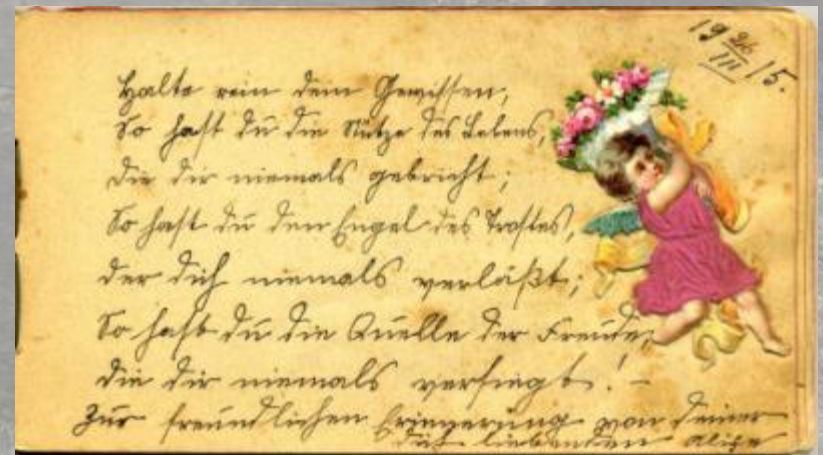 19 26/III 15.
Halte rein dein Gewissen,
So hast du die Stütze des Lebens,
Die dir niemals gebricht;
So hast du den Engel des Trostes,
der dich niemals verläßt;
So hast du die Quelle der Freude,
die dir niemals versiegt! –
Zur freundlichen Erinnerung von Deiner
dich liebenden Alice